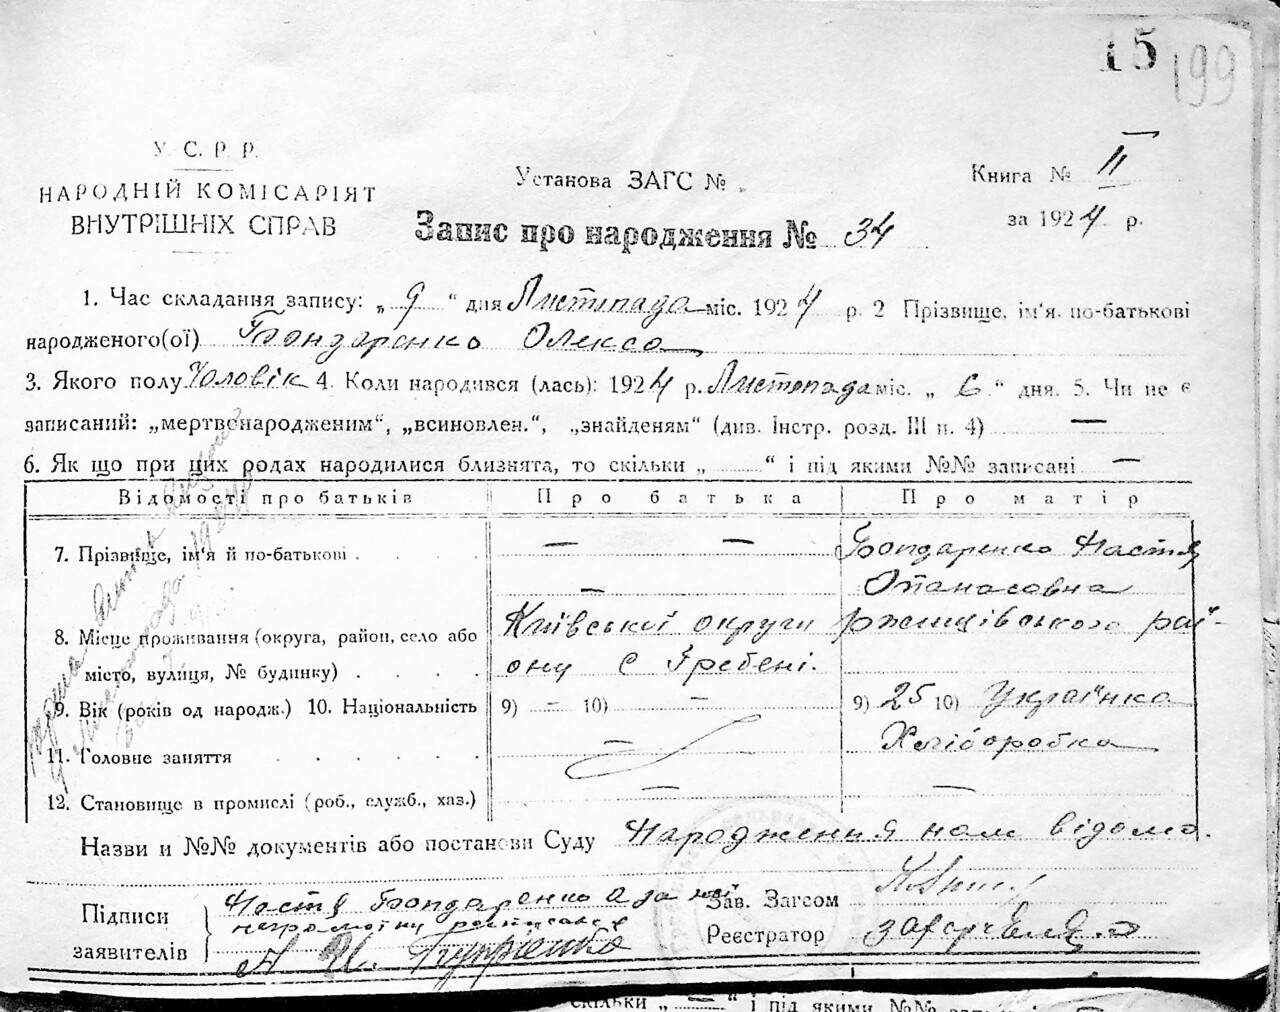 15 199
У. С. Р. Р.
НАРОДНІЙ КОМІСАРІЯТ
ВНУТРІШНІХ СПРАВ
Установа ЗАГС №
Запис про народження № 34
Книга № II
за 1924 р.
1. Час складання запису: „ 9 “ дня Листопада міс. 1924 р. 2 Прізвище, ім'я, по-батькові
народженого(ої) Бондаренко Олекса
3. Якого полу Чоловік 4. Коли народився (лась): 1924 р. Листопада міс. „ 6 “ дня. 5. Чи не є
записаний: „мертвонародженим“, „всиновлен.“, „знайденям“ (див. Інстр. розд. III п. 4) —
6. Як що при цих родах народилися близнята, то скільки „ “ і під якими №№ записані —
Відомості про батьків Про батька Про матір
7. Прізвище, ім'я й по-батькові . — — Бондаренко Настя
— Опанасовна
8. Місце проживання (округа, район, село або Київської округи ржищівського раї-
місто, вулиця, № будинку) ону с Гребені.
9. Вік (років од народж.) 10. Національність 9) - 10) - 9) 25 10) Українка
11. Головне заняття — Хліборобка
12. Становище в промислі (роб., служб., хаз.) — —
Назви и №№ документів або постанови Суду Народження нам відомо.
Підписи заявителів
Настя Бондаренко а за неї
неграмотну росписався
Зав. Загсом
Реєстратор
скільки „ — “ і під якими №№